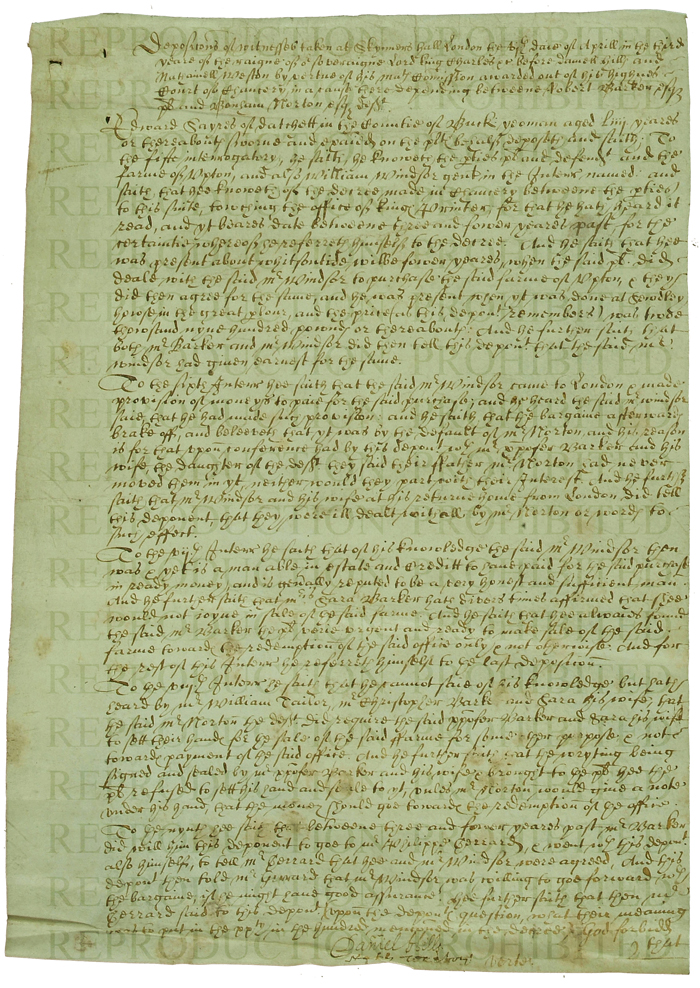 Depositions of witnesses taken at Skynners hall London the daie of Aprill in the third
yeare of the raigne of or soveraigne Lord king Charles &c before Daniell Hills and
Nathaniell Weston by vertue of his mats Comission awarded out of his highnes
Court of Chauncery in a cause there depending betweene Robert Barker esqr
plt and Bonham Norton esqr defft
Edward Sayres of datchett in the Countie of Buck yeoman aged yeares
or thereabouts sworne and exaied on the plts behalf deposeth and saith; To
the fifte interrogatory, he saith, he knoweth the pties pl and defendt and the
farme of Vpton, and also William Windsor gent in the Interr named: and
saith that he knoweth of the decree made in Chauncery betweene the pties
to this suite, towching the office of kings Printer, for that he hath heard it
read, and yt beares date betweene three and fower yeares past for the
certaintie whereof he referreth himself to the decree. And he saith that hee
was present about whitsontide wilbe fower yeares, when the said plt did
deale with the said mr Windsor to purchase the said farme of Vpton, & they
did then agree for the same, and he was present when yt was done at
howse in the great plour, and the price (as this depont remembers) was twoe
thowsand nyne hundred pownds or thereabouts: And he further saith that
both mr Barker and mr Windsor did then tell this depont that the said mr
windsor had given earnest for the same.
To the sixth Interr hee saith that the said mr Windsor came to London & made
provision of moneys to paie for the said purchase; and he heard the said mr windsor
saie, that he had made such provision: and he saith that the bargaine afterwards
brake off, and beleeveth that yt was by the default of mr Norton, and his reason
is for that vpon conference had by this depont wth mr xpofer Barker and his
wife, the daughter of the defft they said their ffather mr Norton had never
moved them in yt, neither would they part with their Interest. And he further
saith that mr Windsor and his wife at his returne home from London did tell
this deponent, that they were ill dealt withall, by mr Norton or words to
such effect.
To the Interr he saith that of his knowledge the said mr Windsor then
was & yet is a man able in estate and creditt to have paid for the said purchase
in ready money, and is genally reputed to be a very honest and sufficient man
And he further saith that mris Sara Barker hath divers times affirmed that shee
would not joyne in sale of the said farme. And he saith that hee alwaies found
the said mr Barker the plt verie vrgent and ready to make sale of the said
farme toward the redemption of the said office only & not otherwise. And for
the rest of this Interr he referreth himself to he last deposition.
To the Interr he saith that he cannot saie of his knowledge but hath
heard by mr William Tailor, mr Christopher Barker and Sara his wife that
he said mr Norton the defft did require the said xpofer Barker and Sara his wife
to sett their hands for the sale of the said ffarme for some other purpose & not
toward payment of the said office. And he further saith that the wryting being
signed and sealed by mr xpofer Barker and his wife & brought to the plt hee the
plt refused to sett his hand and seale to yt, vnles mr Norton would give a note
vnder his hand, that the money should goe toward the redemption of the office.
To the nynth hee saith that betweene three and fower yeares past mr Barker
did will him this deponent to goe to mr Philipp Gerrard, & went wth this depont
also himself, to tell mr Gerrard that hee and mr Windsor were agreed, And this
depont then told mr Gerrard that mr Windsor was willing to goe forward wth
the bargaine, if he might have good assurance. Hee further saith that then mr
Gerrard said to this depont (vpon the deponts question, what their meaning
was to put in the in the hundred mentioned in the decree) God forbidd
Daniel Hills that